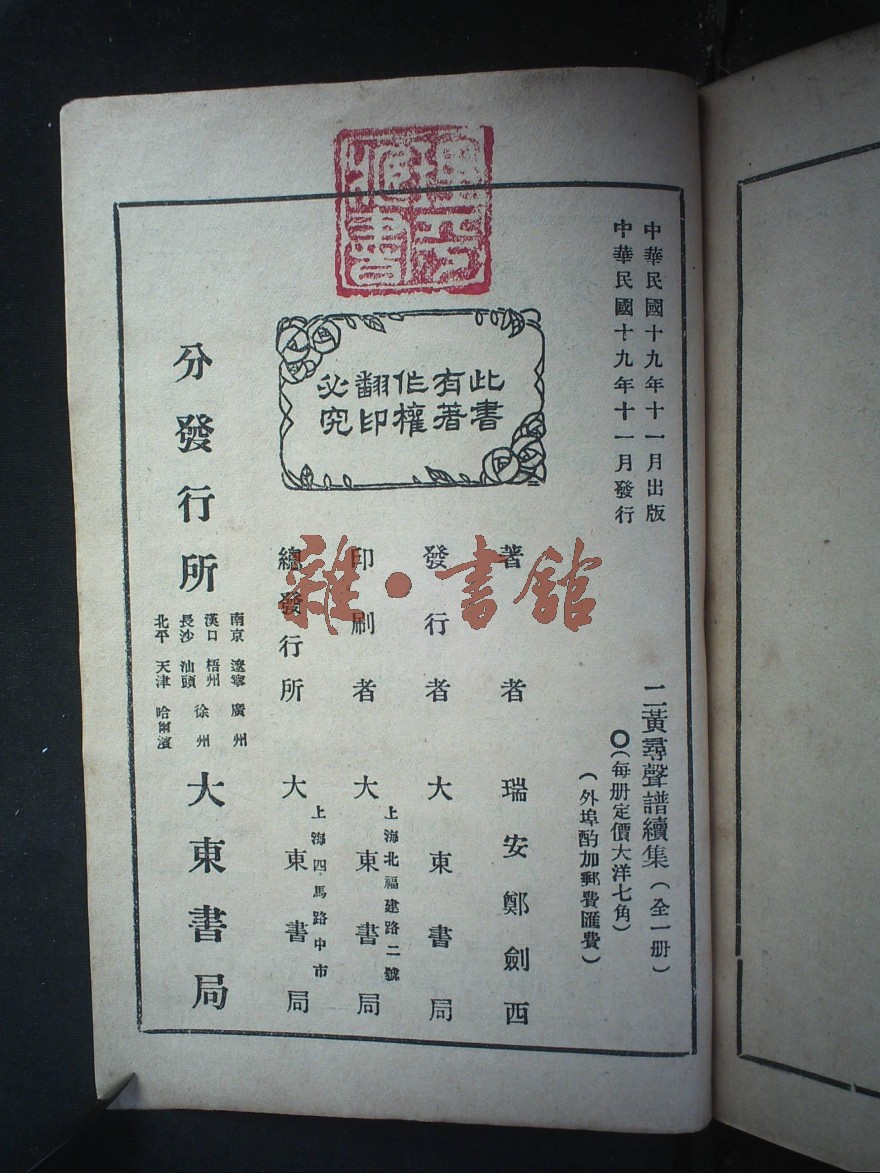 中華民國十九年十一月出版
中華民國十九年十一月發行
二黃尋聲譜續集（全一册）
（每册定價大洋七角）
（外埠酌加郵費匯費）
此書
有著
作權
翻印
必究
著者 瑞安鄭劍西
發行者 大東書局
印刷者 上海北福建路二號 大東書局
總發行所 上海四馬路中市 大東書局
分發行所
南京 遼寧 廣州
漢口 梧州 徐州
長沙 汕頭
北平 天津 哈爾濱
大東書局
雜·書館